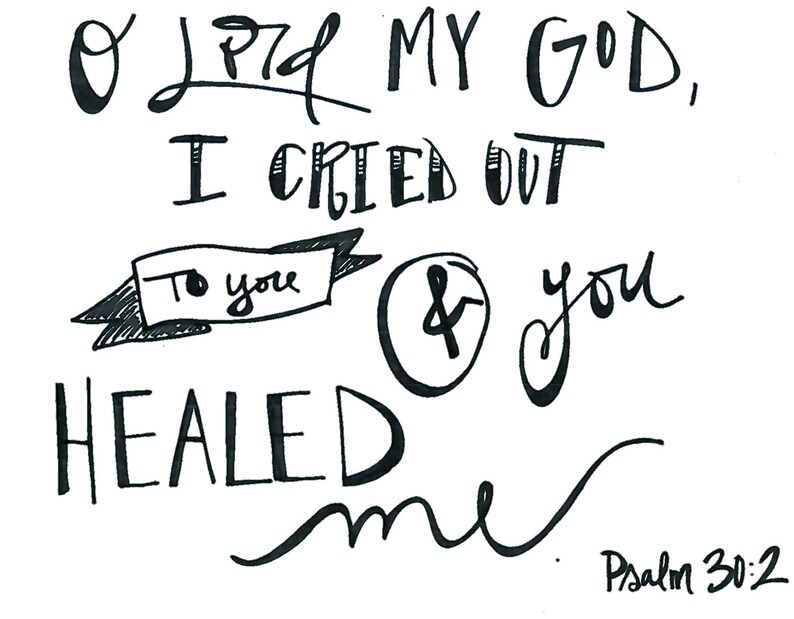 O Lord MY GOD,
I CRIED OUT
TO you & you
HEALED
me
Psalm 30:2